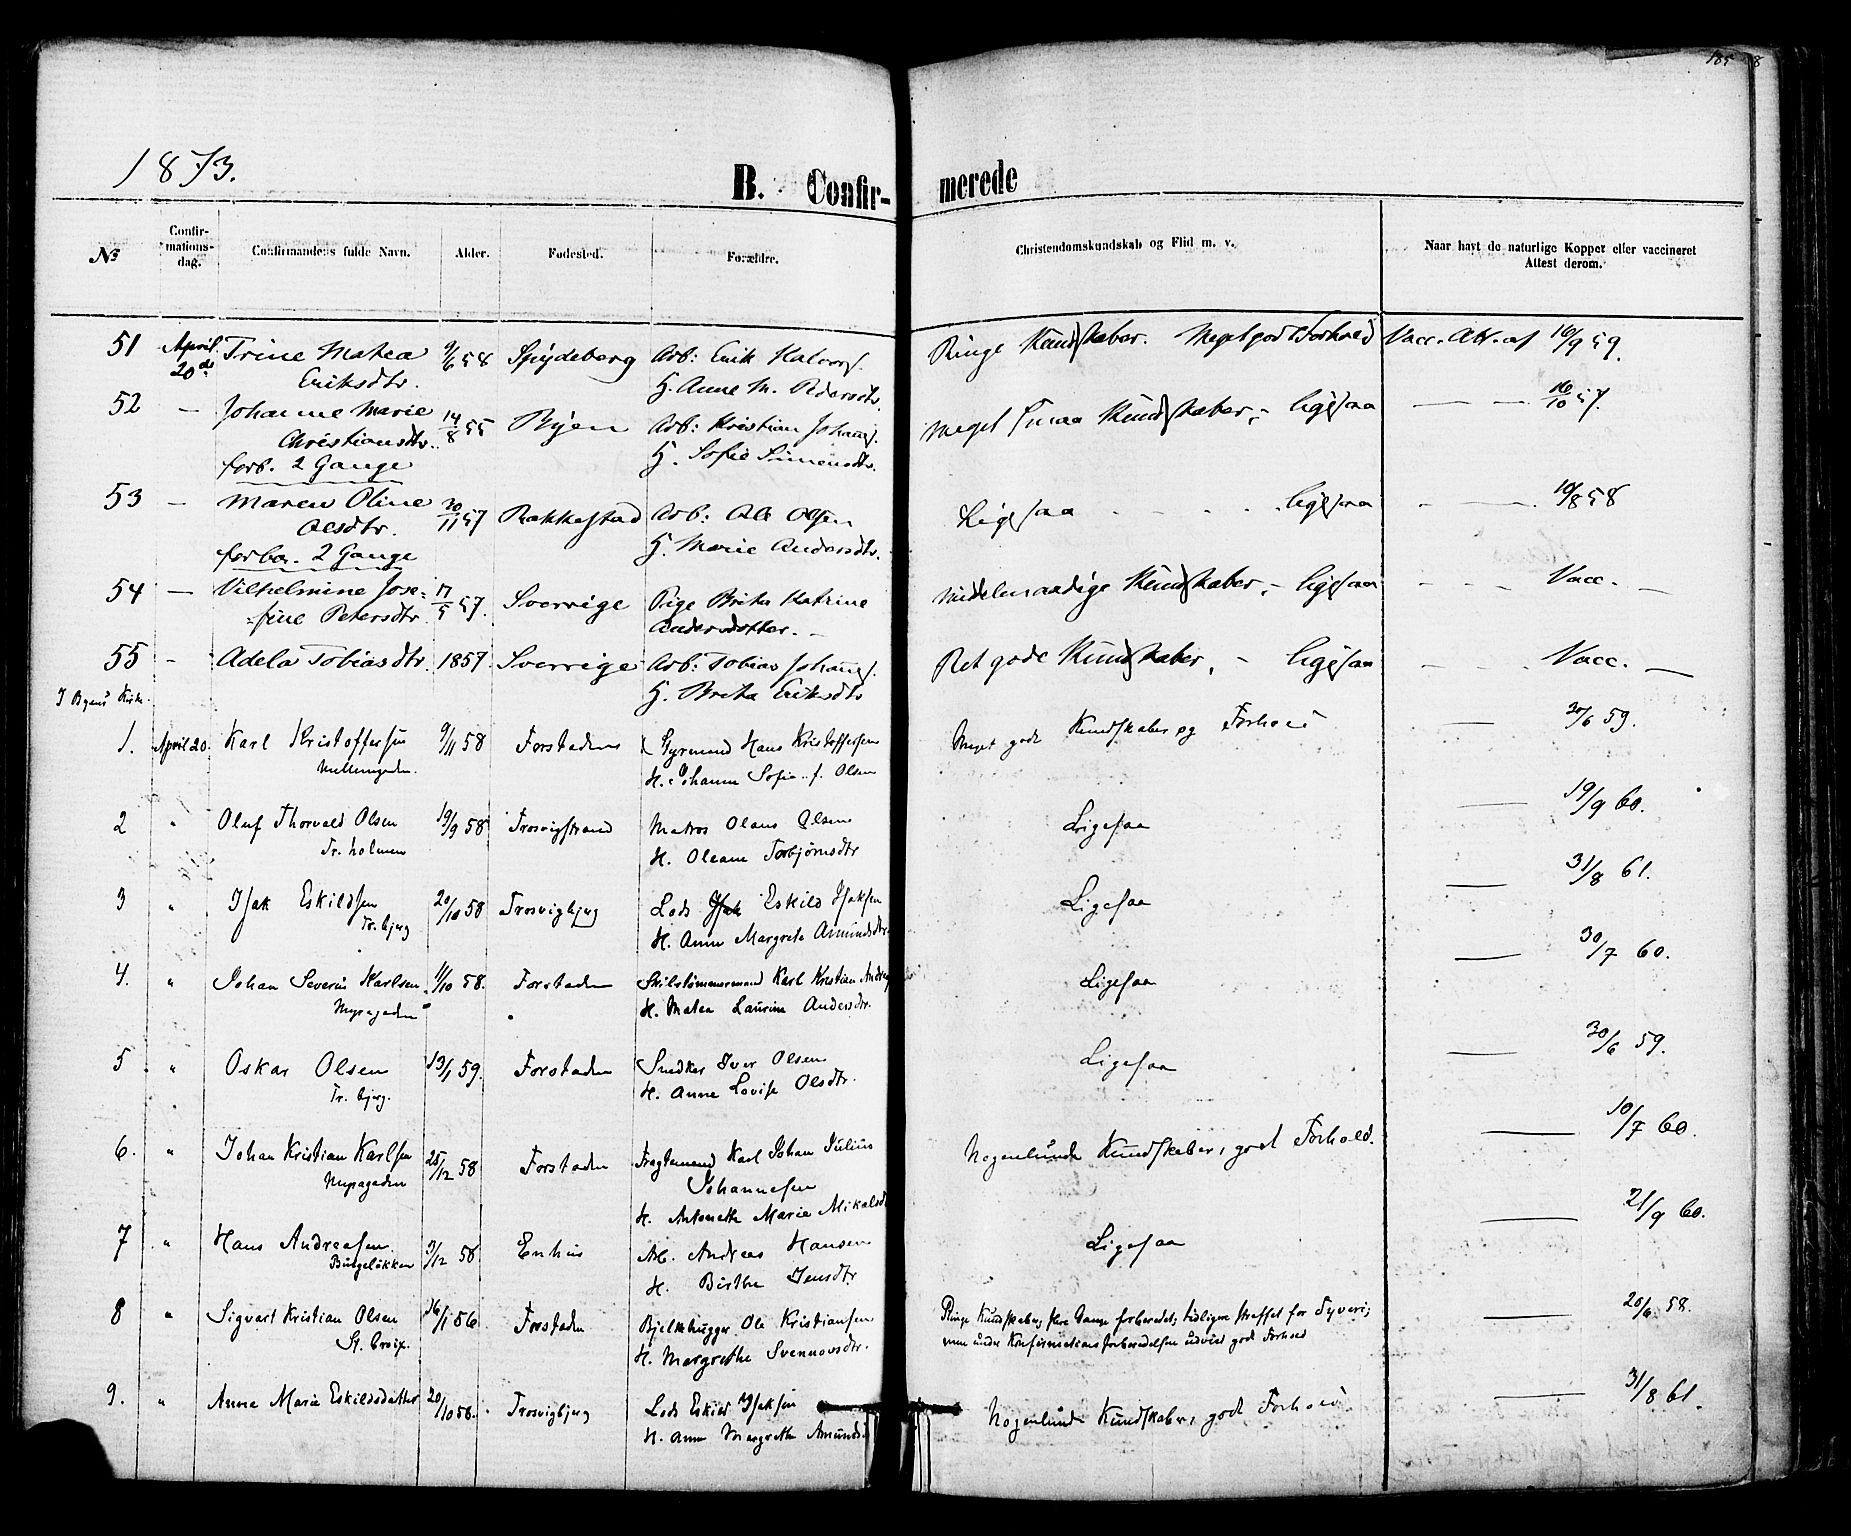 185
8
1873.
B. Confir-
merede
No
Confir-
mations-
dag.
Confirmandens fulde Navn.
Alder.
Fødested.
Forældre.
Christendomskundskab og Flid m. v.
Naar havt de naturlige Kopper eller vaccineret
Attest derom.
51 April 20de Trine Matea 9/6 58 Spydeberg Arb: Erik Halvors. Ringe Kundskaber. Meget godt Forhold Vacc. Att. af 16/9 59.
Eriksdtr. H. Anne M. Pedersdtr.
52 — Johanne Marie 14/8 55 Byen Arb: Kristian Johans. meget smaa Kundskaber, - ligesaa — — 16/10 57.
Christiansdtr. H. Sofie Simensdtr.
forb. 2 Gange
53 — Maren Oline 30/11 57 Rakkestad Arb: Ole Olsen Ligesaa - - - ligesaa - — 10/8 58
Olsdtr. H. Marie Andersdtr.
forb. 2 Gange
54 — Vilhelmine Jose= 17/5 57. Sverrige Pige Brita Katrine middelmaadige Kundskaber, - ligesaa - - - Vacc. —
=fine Petersdtr Andersdatter. —
55 — Adela Tobiasdtr. 1857 Sverrige Arb: Tobias Johans. Ret gode Kundskaber, - ligesaa - - - Vacc. —
H. Brita Eriksdtr
I Byens Kirke.
1. April 20. Karl Kristoffersen 9/11 58 Forstaden Gjørmand Hans Kristoffersen Meget gode Kundskaber og Forhold — 30/6 59.
Mellemgaden. H. Johanne Sofie f. Olsen
2 " Oluf Thorvald Olsen 19/9 58 Trosvigstrand Matros Olaus Olsen Ligesaa — 19/9 60.
Tr. holmen H. Oleane Torbjørnsdtr
3 " Isak Eskildsen 20/10 58 Trosvigbjerg Lods Isak Eskild Isaksen Ligesaa — 31/8 61.
Tr. bjerg H. Anne Margrete Amundsdtr
4. " Johan Severin Karlsen 11/10 58. Forstaden Skilstømmermand Karl Kristian Ligesaa — 30/7 60.
Myragaden H. Matea Laurine Andersdtr.
5 " Oskar Olsen 13/1 59. Forstaden Snedker Iver Olsen Ligesaa — 30/6 59.
Tr. bjerg. H. Anne Lovise Olsdtr.
6. " Johan Kristian Karlsen 25/12 58 Forstaden Fragtemand Karl Johan Julius Nogenlunde Kundskaber, godt Forhold. — 10/7 60.
Myragaden Johannesen
H. Antonette Marie Mikalsd
7 " Hans Andreasen 3/12 58 Enhus Arb. Andreas Hansen Ligesaa — 21/9 60.
Bingeløkken H. Birthe Jensdtr
8 " Sigvart Kristian Olsen 16/1 56 Forstaden Bjelkehugger Ole Kristiansen Ringe Kundskaber, flere Gange forberedet; tidligere straffet for Tyveri; — 20/6 58.
St. Croix. H. Margrethe Svennovsdtr. men under Konfirmationsforberedelsen udvist godt Forhold
9. " Anne Marie Eskildsdatter 20/10 58. Trosvigbjerg Lods Eskild Isaksen Nogenlunde Kundskaber, godt Forhold — 31/8 61.
H. Anne Margrethe Amunds